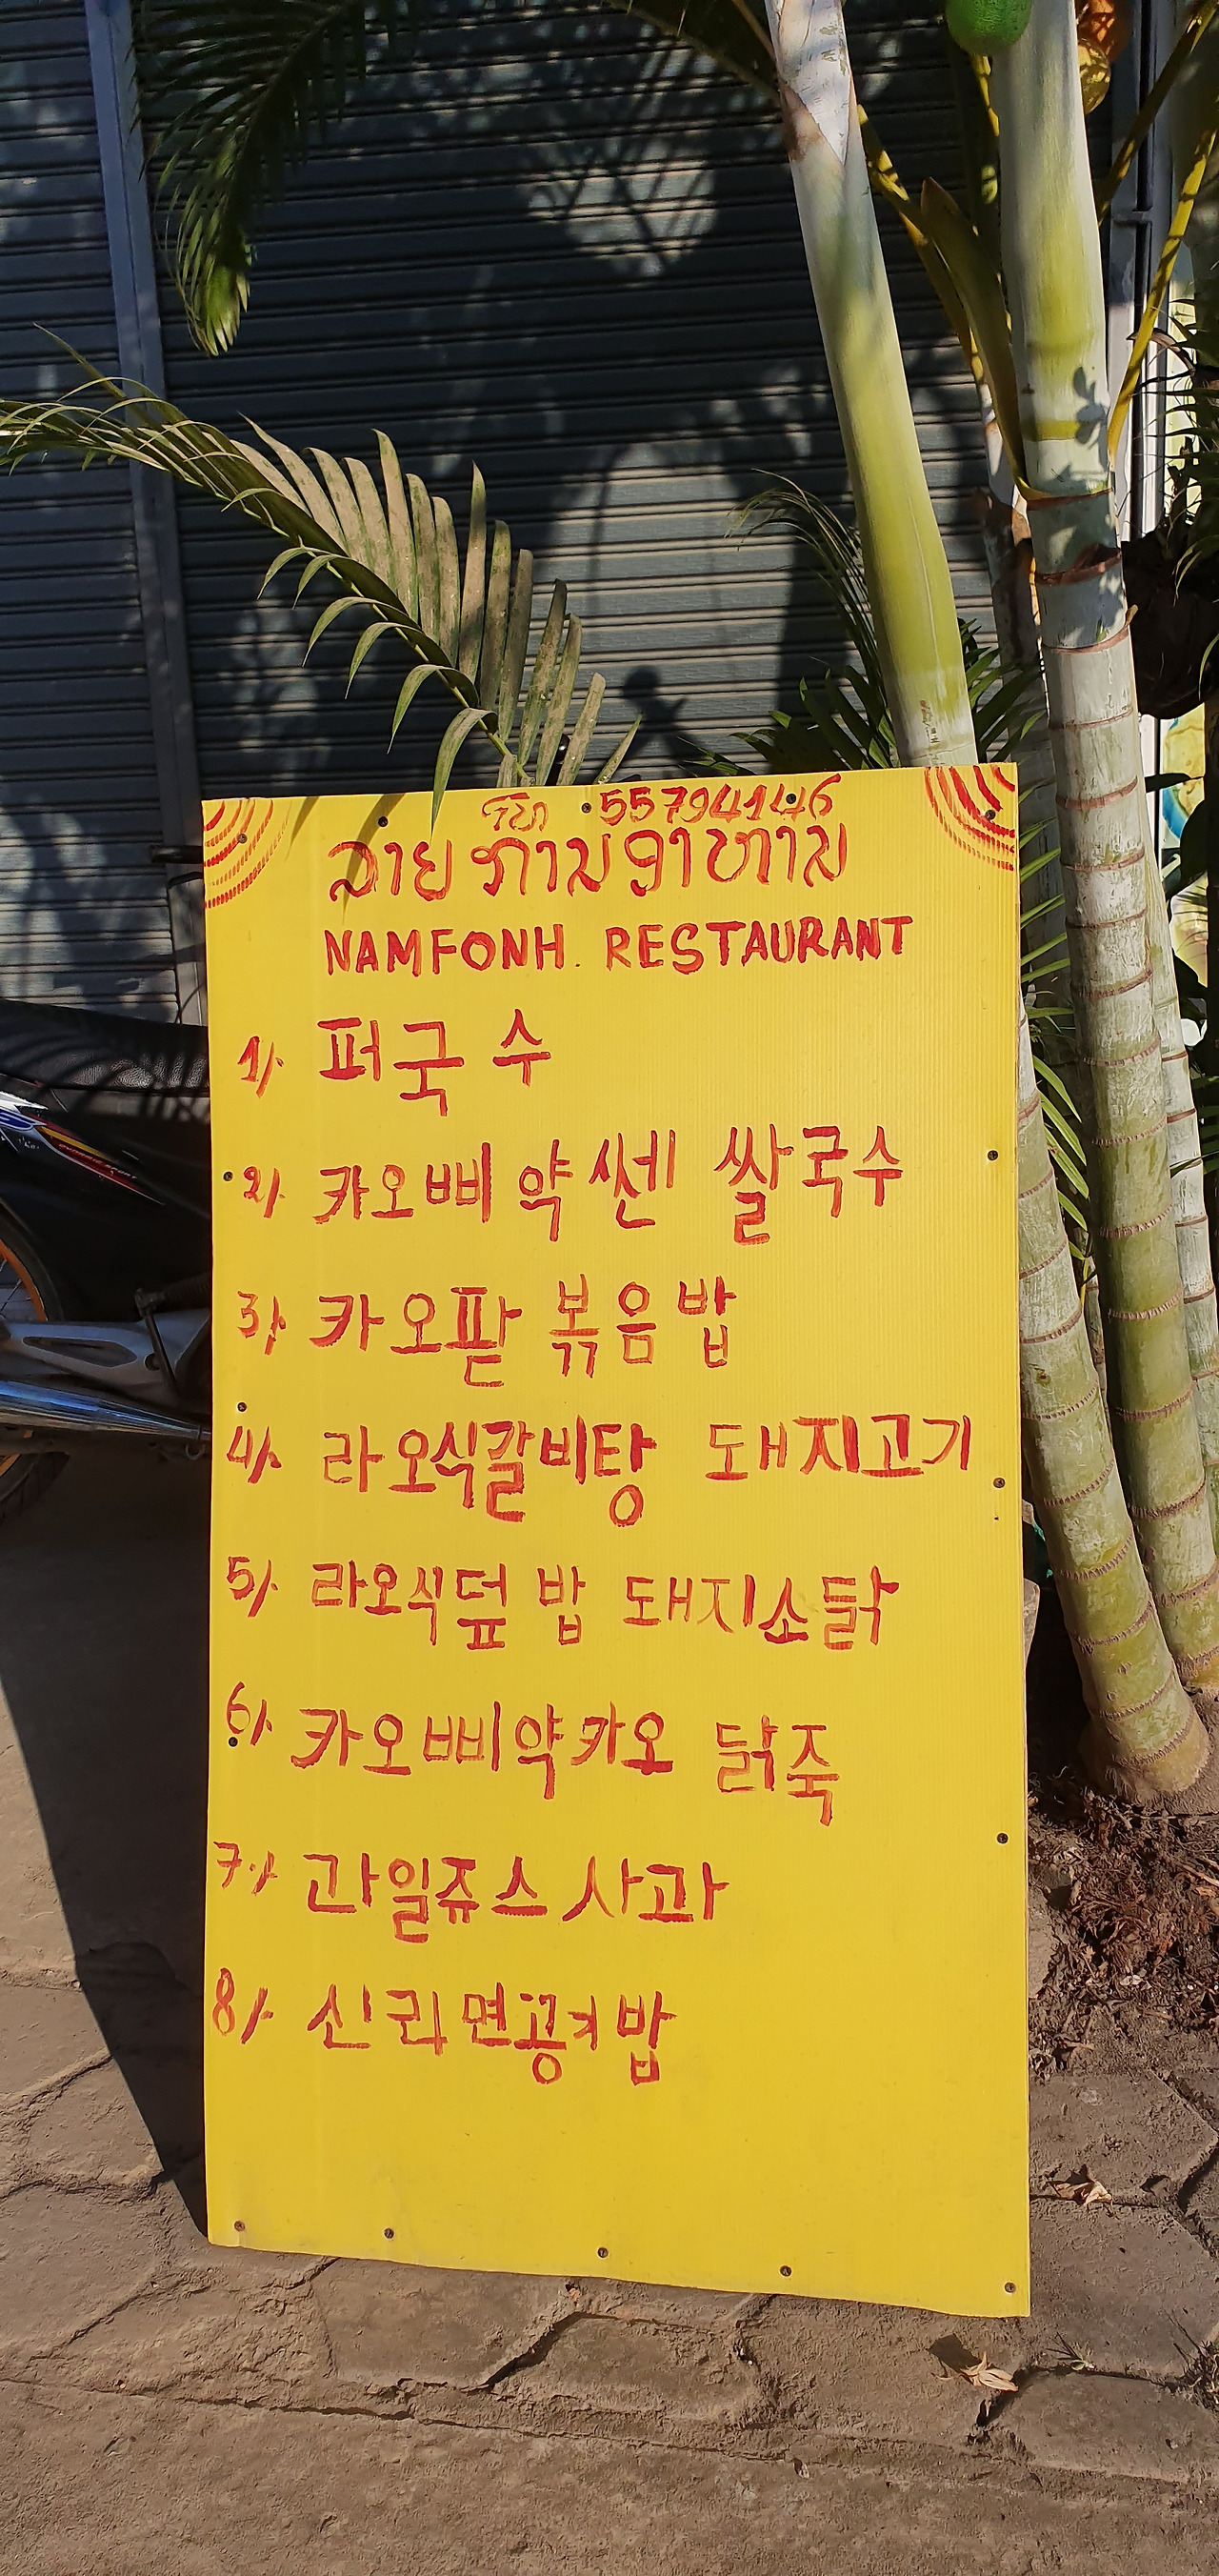 ໂທ 55794146
ລາຍການອາຫານ
NAMFONH. RESTAURANT
1/. 퍼국수
2/. 카오삐약쎈 쌀국수
3/. 카오팓 볶음밥
4/. 라오식갈비탕 돼지고기
5/. 라오식덮밥 돼지소닭
6/. 카오삐약카오 닭죽
7/. 과일쥬스사과
8/. 신라면공기밥